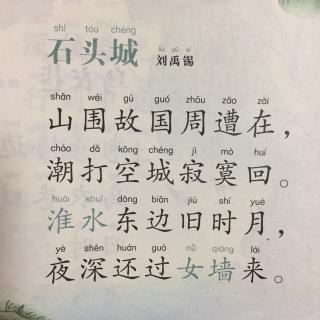 shí tóu chéng
石头城
liú yǔ xī
刘禹锡
shān wéi gù guó zhōu zāo zài
山围故国周遭在，
cháo dǎ kōng chéng jì mò huí
潮打空城寂寞回。
huái shuǐ dōng biān jiù shí yuè
淮水东边旧时月，
yè shēn huán guò nǚ qiáng lái
夜深还过女墙来。